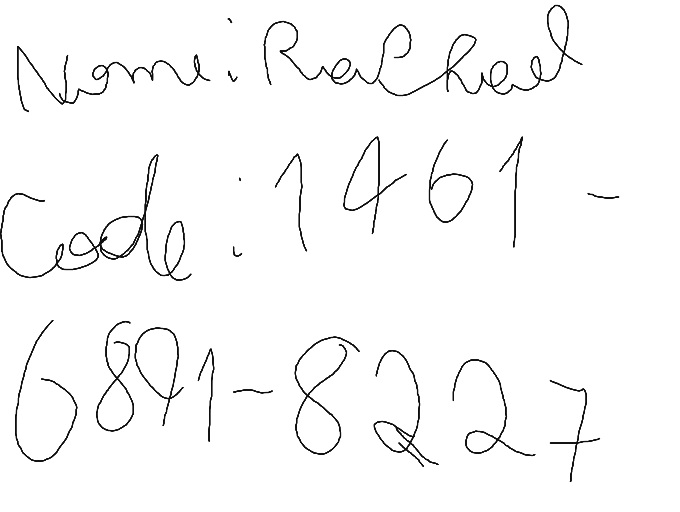 Name: Rachael
Code: 1461-
6891-8227